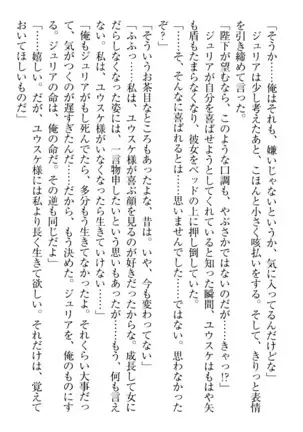 「そうか……俺はそれも、嫌いじゃないというか、気に入ってるんだけどな」
ジュリアは少し考えたあと、こほんと小さく咳払いをする。そして、きりっと表情
を引き締めて言った。
「陛下が望むなら、このような口調も、やぶさかではないのだが……きゃっ⁉」
ジュリアが自分を喜ばせようとしてくれていると知った瞬間、ユウスケはもはや矢
も盾もたまらなくなり、彼女をベッドの上に押し倒していた。
「……そ、そんなに喜ばれるとは……思いませんでした……いや。思わなかった
ぞ？」
「そういうお茶目なところもあったよな、昔は。いや、今も変わってない」
「ふふっ……私は、ユウスケ様が喜ぶ顔を見るのが好きだったからな。成長して女に
だらしなくなった姿には、一言物申したいという思いもあったが……もう、何も言え
ない……私は、ユウスケ様がいなくなったら生きていけない……」
「俺もジュリアがもし死んでたら、多分もう生きてなかったよ。それくらい大事だっ
て、気がつくのが遅すぎたんだ……だから、もう決めた。ジュリアは、俺のものにす
る。ジュリアの命は、俺の命だ。その逆も同じだよ」
「……嬉しい。だが、ユウスケ様には私より長く生きて欲しい。それだけは、覚えて
おいてほしいものだ」